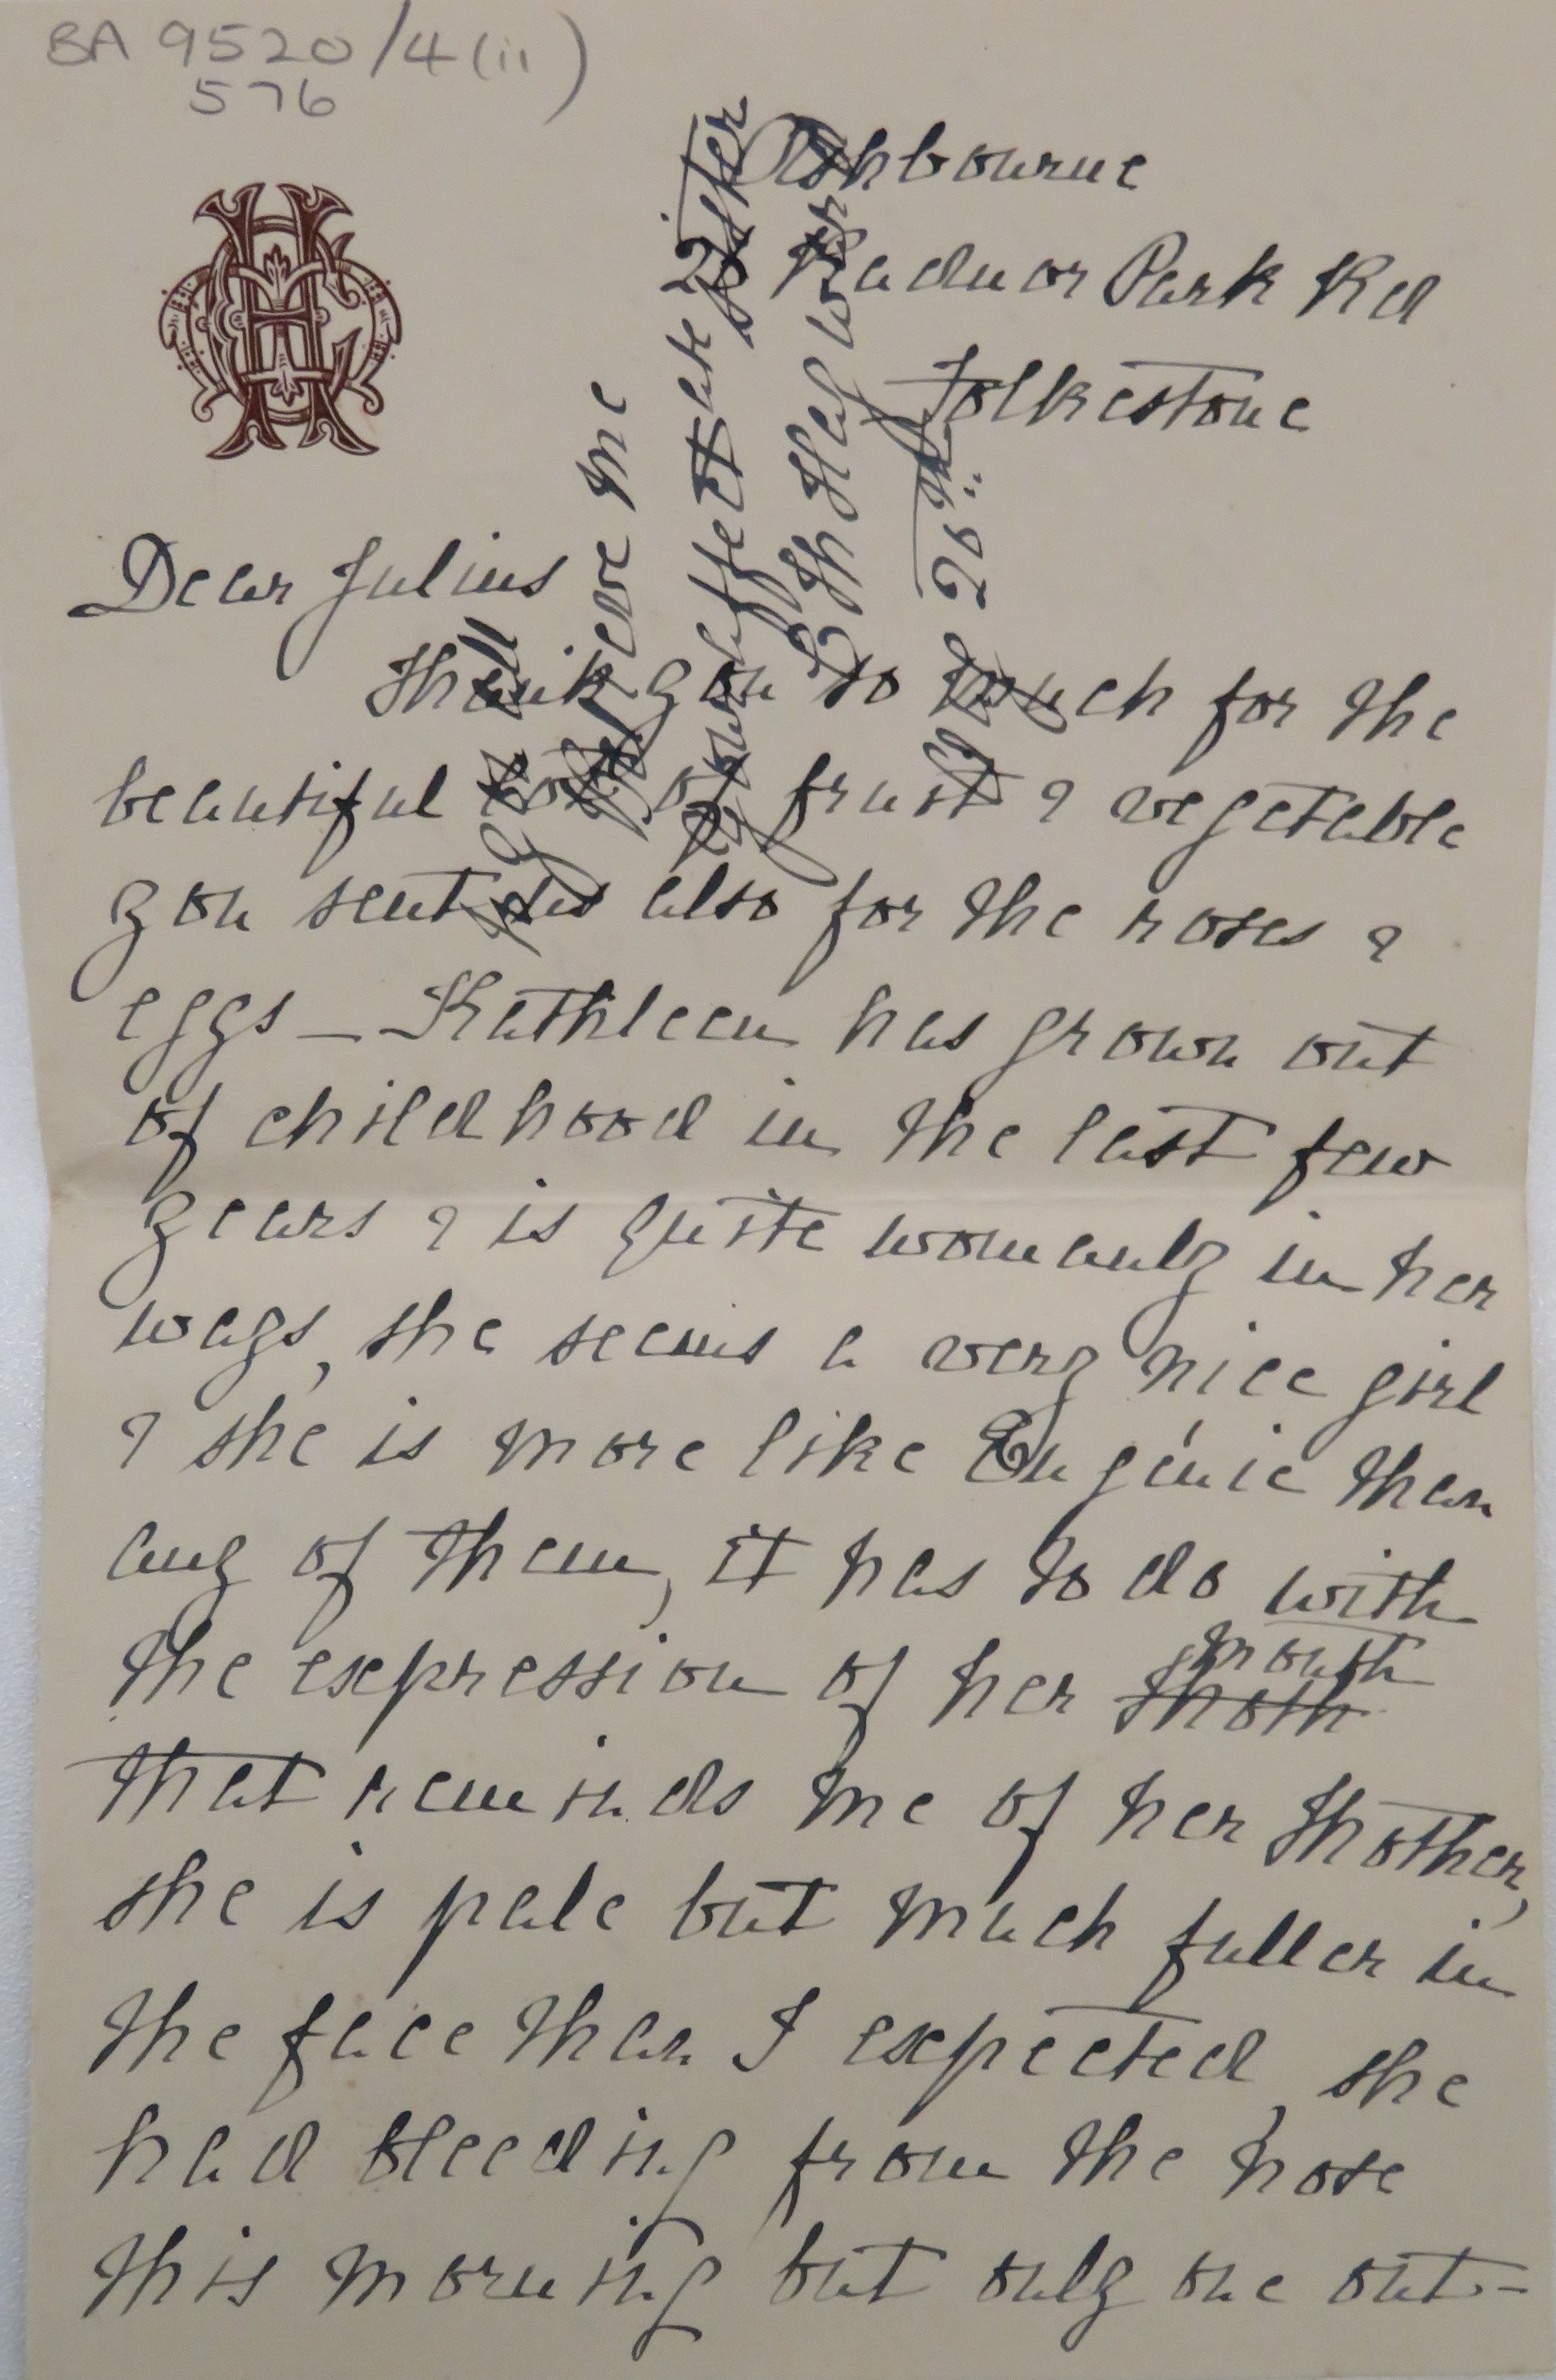 BA 9520/4(ii)
576
Ashbourne
Radnor Park Rd
Folkestone
Dear Julius
Thank you so much for the
beautiful lot of fruit & vegetable
you sent us also for the roses &
eggs — Kathleen has grown out
of childhood in the last few
years & is quite womanly in her
ways, she seems a very nice girl
& she is more like Eugénie than
any of them, it has to do with
the expression of her Moth mouth
that reminds me of her Mother,
she is pale but much fuller in
the face than I expected, she
had bleeding from the nose
this morning but only one out-
you all
Believe me
your affectate Sister
25th